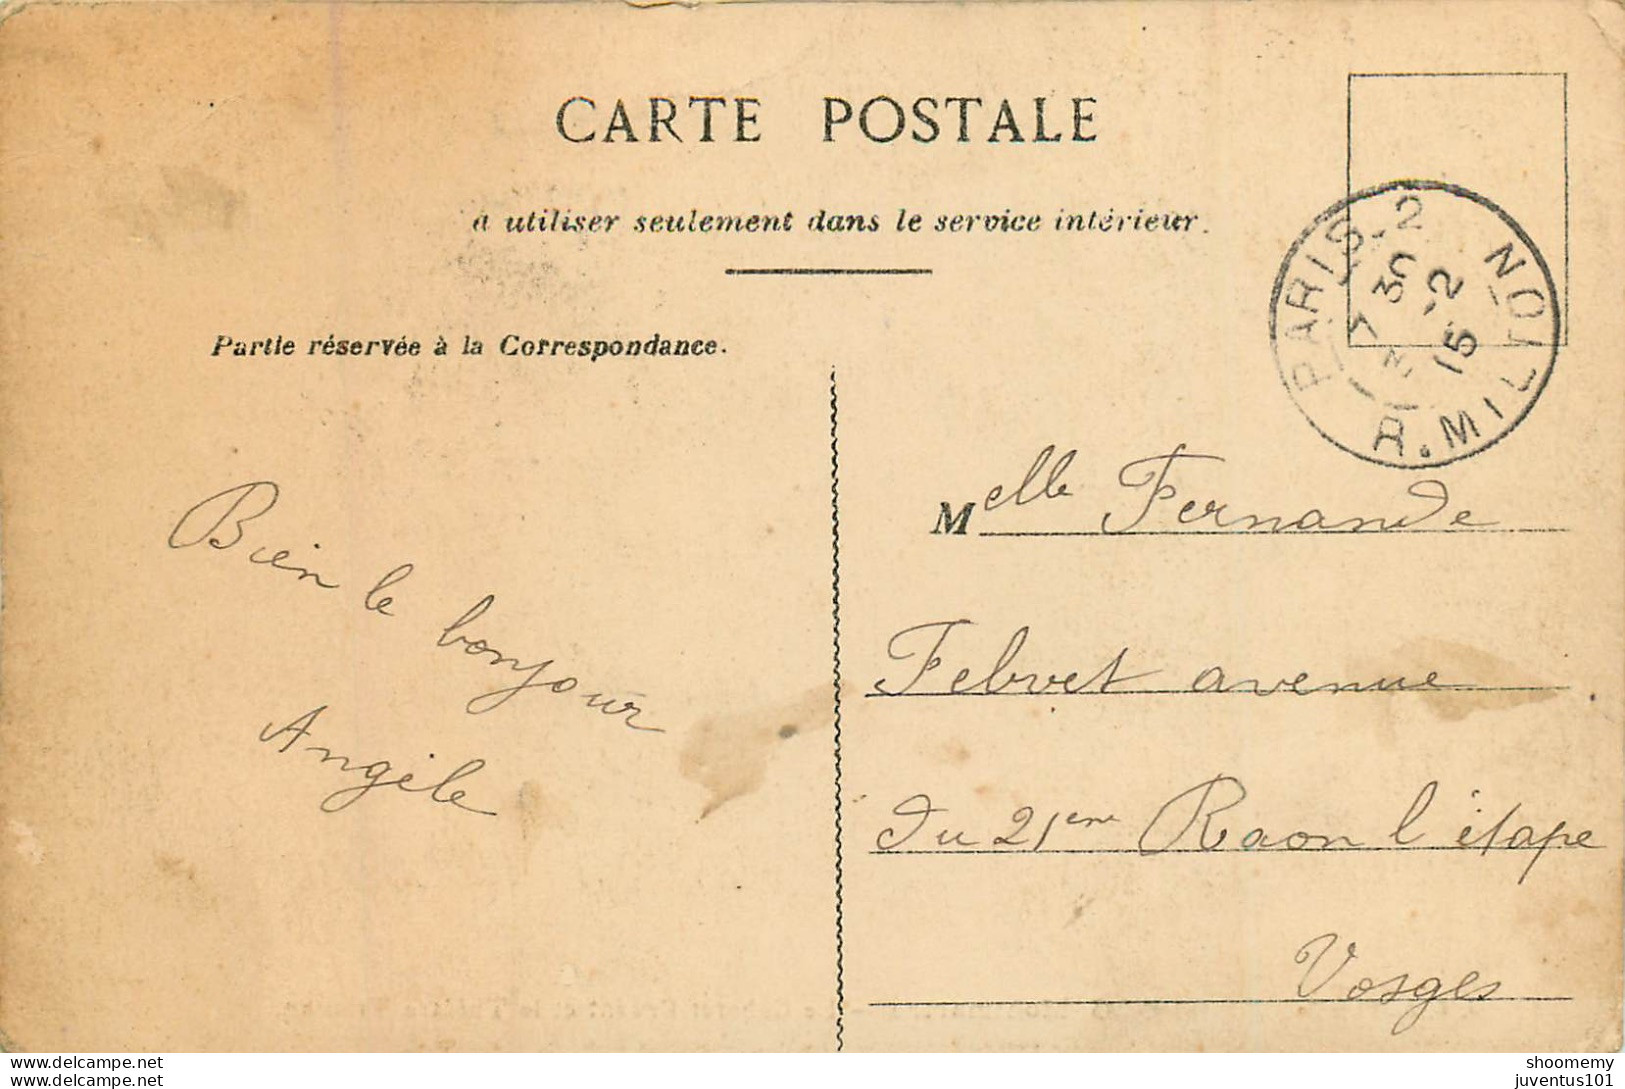 CARTE POSTALE
à utiliser seulement dans le service intérieur.
PARIS-2
R. MILTON
7 30
15 -2
15
Partie réservée à la Correspondance.
Bien le bonjour
Angèle
Melle Fernande
Febvet avenue
du 21ème Raon l'étape
Vosges
shoomemy
juventus101